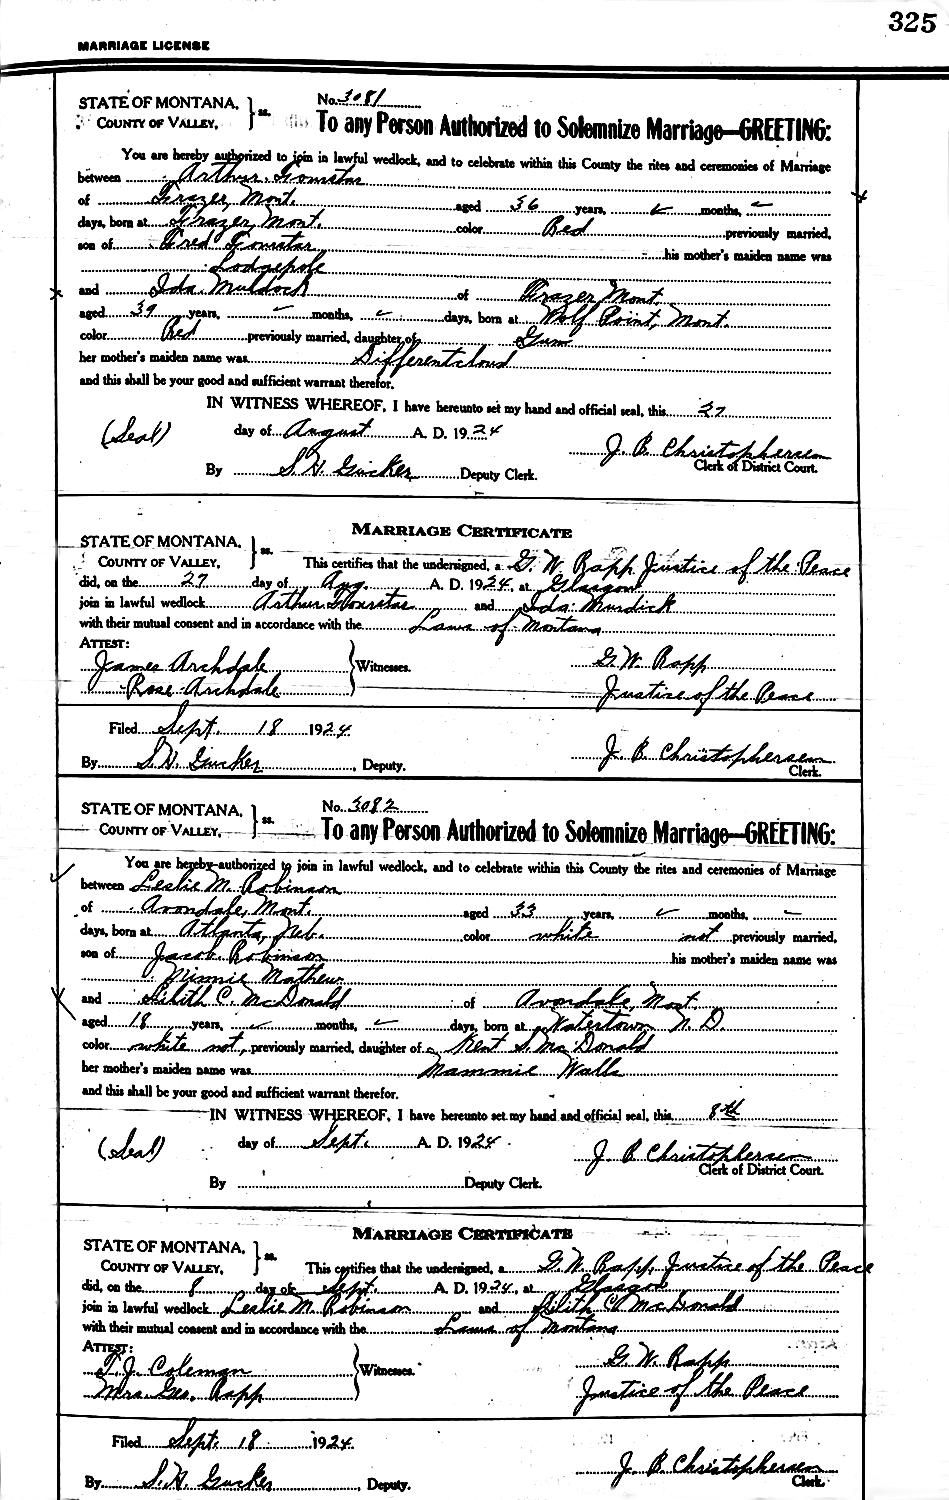 325
MARRIAGE LICENSE
STATE OF MONTANA, } ss. No. 3081
COUNTY OF VALLEY, To any Person Authorized to Solemnize Marriage—GREETING:
You are hereby authorized to join in lawful wedlock, and to celebrate within this County the rites and ceremonies of Marriage
between Arthur Fourstar
of Frazer, Mont. aged 36 years, months,
days, born at Frazer, Mont. color Red previously married,
son of Fred Fourstar his mother's maiden name was
Lodgepole
and Ida Muldock of Frazer Mont.
aged 39 years, months, days, born at Wolf Point, Mont.
color Red previously married, daughter of Gum
her mother's maiden name was Differentcloud
and this shall be your good and sufficient warrant therefor.
IN WITNESS WHEREOF, I have hereunto set my hand and official seal, this 27
(Seal) day of August A. D. 1924 J. B. Christophersen
Clerk of District Court.
By S. H. Gucker Deputy Clerk.
MARRIAGE CERTIFICATE
STATE OF MONTANA, } ss.
COUNTY OF VALLEY, This certifies that the undersigned, a G. W. Rapp Justice of the Peace
did, on the 27 day of Aug. A. D. 1924, at Glasgow
join in lawful wedlock Arthur Fourstar and Ida Murdick
with their mutual consent and in accordance with the Laws of Montana
ATTEST:
James Archdale } Witnesses. G. W. Rapp
Rose Archdale Justice of the Peace
Filed Sept. 18 1924
By S. H. Gucker, Deputy. J. B. Christophersen
Clerk.
STATE OF MONTANA, } ss. No. 3082
COUNTY OF VALLEY, To any Person Authorized to Solemnize Marriage—GREETING:
You are hereby authorized to join in lawful wedlock, and to celebrate within this County the rites and ceremonies of Marriage
between Leslie M. Robinson
of Avondale, Mont. aged 33 years, months,
days, born at Atlanta, Neb. color white not previously married,
son of Jacob Robinson his mother's maiden name was
Minnie Mathew
and Lilith C. McDonald of Avondale, Mont
aged 18 years, months, days, born at Watertown N. D.
color white not, previously married, daughter of Kent S. McDonald
her mother's maiden name was Mammie Walls
and this shall be your good and sufficient warrant therefor.
IN WITNESS WHEREOF, I have hereunto set my hand and official seal, this 8th
(Seal) day of Sept. A. D. 1924 J. B Christophersen
Clerk of District Court.
By Deputy Clerk.
MARRIAGE CERTIFICATE
STATE OF MONTANA, } ss.
COUNTY OF VALLEY, This certifies that the undersigned, a G. W. Rapp, Justice of the Peace
did, on the 8 day of Sept. A. D. 1924, at Glasgow
join in lawful wedlock Leslie M. Robinson and Lilith C. McDonald
with their mutual consent and in accordance with the Laws of Montana
ATTEST:
T. J. Coleman } Witnesses. G. W. Rapp
Mrs. Geo. Rapp Justice of the Peace
Filed Sept. 18 1924
By S. H. Gucker, Deputy. J. B. Christophersen
Clerk.